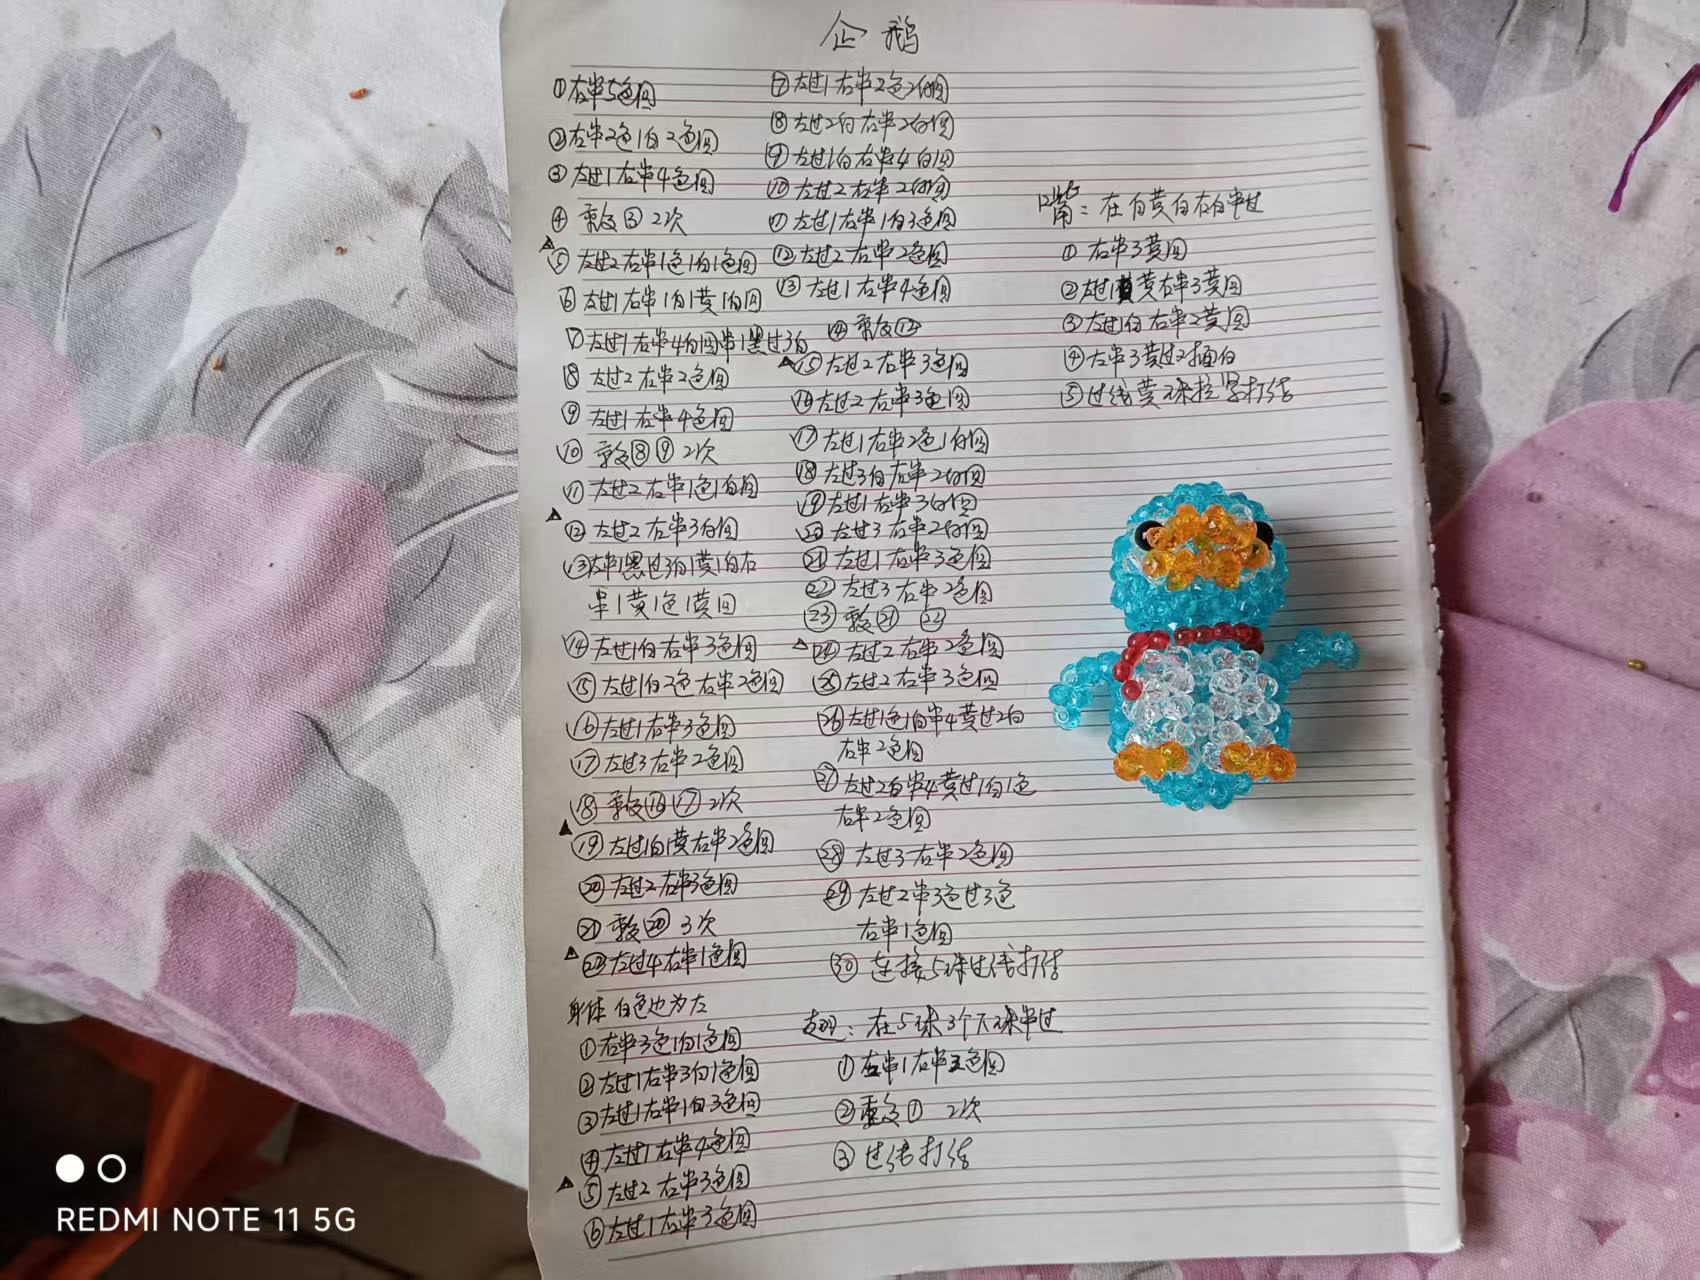 企鹅
①右串5色回
②右串2色1白2色回
③左过1右串4色回
④重复③2次
△⑤左过2右串1色1白1色回
⑥左过1右串1白1黄1白回
⑦左过1右串4白回串1黑过3白
⑧左过2右串2色回
⑨左过1右串4色回
⑩重复⑧⑨2次
⑪左过2右串1色1白回
△⑫左过2右串3白回
⑬左串1黑过3白1黄1白右
串1黄1色1黄回
⑭左过1白右串3色回
⑮左过1白2色右串2色回
⑯左过1右串3色回
⑰左过3右串2色回
⑱重复⑯⑰2次
△⑲左过1白1黄右串2色回
⑳左过2右串3色回
㉑重复⑳3次
△㉒左过4右串1色回
身体 白色也为左
①右串3色1白1色回
②左过1右串3白1色回
③左过1右串1白3色回
④左过1右串4色回
△⑤左过2右串3色回
⑥左过1右串3色回
⑦左过1右串2色2白回
⑧左过2白右串2白回
⑨左过1白右串4白回
⑩左过2右串2白回
⑪左过1右串1白3色回
⑫左过2右串2色回
⑬左过1右串4色回
⑭重复⑫⑬
△⑮左过2右串3色回
⑯左过2右串3色回
⑰左过1右串2色1白回
⑱左过3白右串2白回
⑲左过1右串3白回
⑳左过3右串2白回
㉑左过1右串3色回
㉒左过3右串2色回
㉓重复㉑㉒
△㉔左过2右串2色回
㉕左过2右串3色回
㉖左过1色1白串4黄过2白
右串2色回
㉗左过2白串4黄过1白1色
右串2色回
㉘左过3右串2色回
㉙左过2串3色过3色
右串1色回
㉚连接5珠过线打结
翅：在5珠3个下珠串过
①左串1右串3色回
②重复①2次
③过线打结
嘴：在白黄白右白串过
①右串3黄回
②左过1黄右串3黄回
③左过1白右串2黄回
④左串3黄过2插白
⑤过线黄珠拉紧打结
REDMI NOTE 11 5G